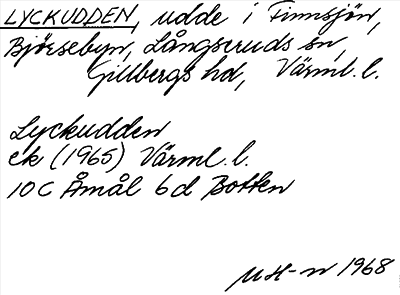 LYCKUDDEN, udde i Finnsjön,
Bjørsebyn, Långseruds sn,
Gillbergs hd, Värml. l.
Lyckudden
ek (1965) Värml. l.
10 C Åmål 6d Botten
MH-n 1968